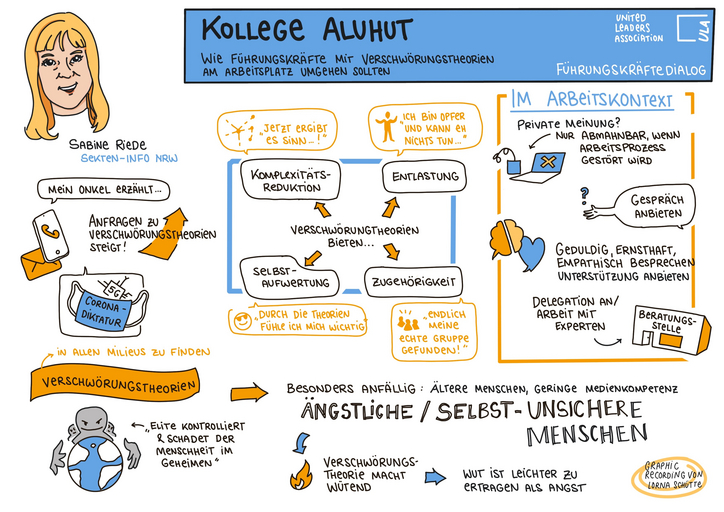 KOLLEGE ALUHUT
WIE FÜHRUNGSKRÄFTE MIT VERSCHWÖRUNGSTHEORIEN
AM ARBEITSPLATZ UMGEHEN SOLLTEN
UNITED
LEADERS
ASSOCIATION
ULA
FÜHRUNGSKRÄFTEDIALOG
SABINE RIEDE
SEKTEN-INFO NRW
MEIN ONKEL ERZÄHLT...
ANFRAGEN ZU
VERSCHWÖRUNGSTHEORIEN
STEIGT!
5G
CORONA-
DIKTATUR
„JETZT ERGIBT
ES SINN...!"
„ICH BIN OPFER
UND KANN EH
NICHTS TUN..."
KOMPLEXITÄTS-
REDUKTION
ENTLASTUNG
VERSCHWÖRUNGTHEORIEN
BIETEN...
SELBST-
AUFWERTUNG
ZUGEHÖRIGKEIT
„DURCH DIE THEORIEN
FÜHLE ICH MICH WICHTIG"
„ENDLICH
MEINE
ECHTE GRUPPE
GEFUNDEN!"
IM ARBEITSKONTEXT
PRIVATE MEINUNG?
NUR ABMAHNBAR, WENN
ARBEITSPROZESS
GESTÖRT WIRD
?
GESPRÄCH
ANBIETEN
GEDULDIG, ERNSTHAFT,
EMPATHISCH BESPRECHEN
UNTERSTÜTZUNG ANBIETEN
DELEGATION AN/
ARBEIT MIT
EXPERTEN
BERATUNGS-
STELLE
IN ALLEN MILIEUS ZU FINDEN
VERSCHWÖRUNGSTHEORIEN
„ELITE KONTROLLIERT
& SCHADET DER
MENSCHHEIT IM
GEHEIMEN"
BESONDERS ANFÄLLIG: ÄLTERE MENSCHEN, GERINGE MEDIENKOMPETENZ
ÄNGSTLICHE / SELBST-UNSICHERE
MENSCHEN
VERSCHWÖRUNGS-
THEORIE MACHT
WÜTEND
WUT IST LEICHTER ZU
ERTRAGEN ALS ANGST
GRAPHIC
RECORDING VON
LORNA SCHÜTTE